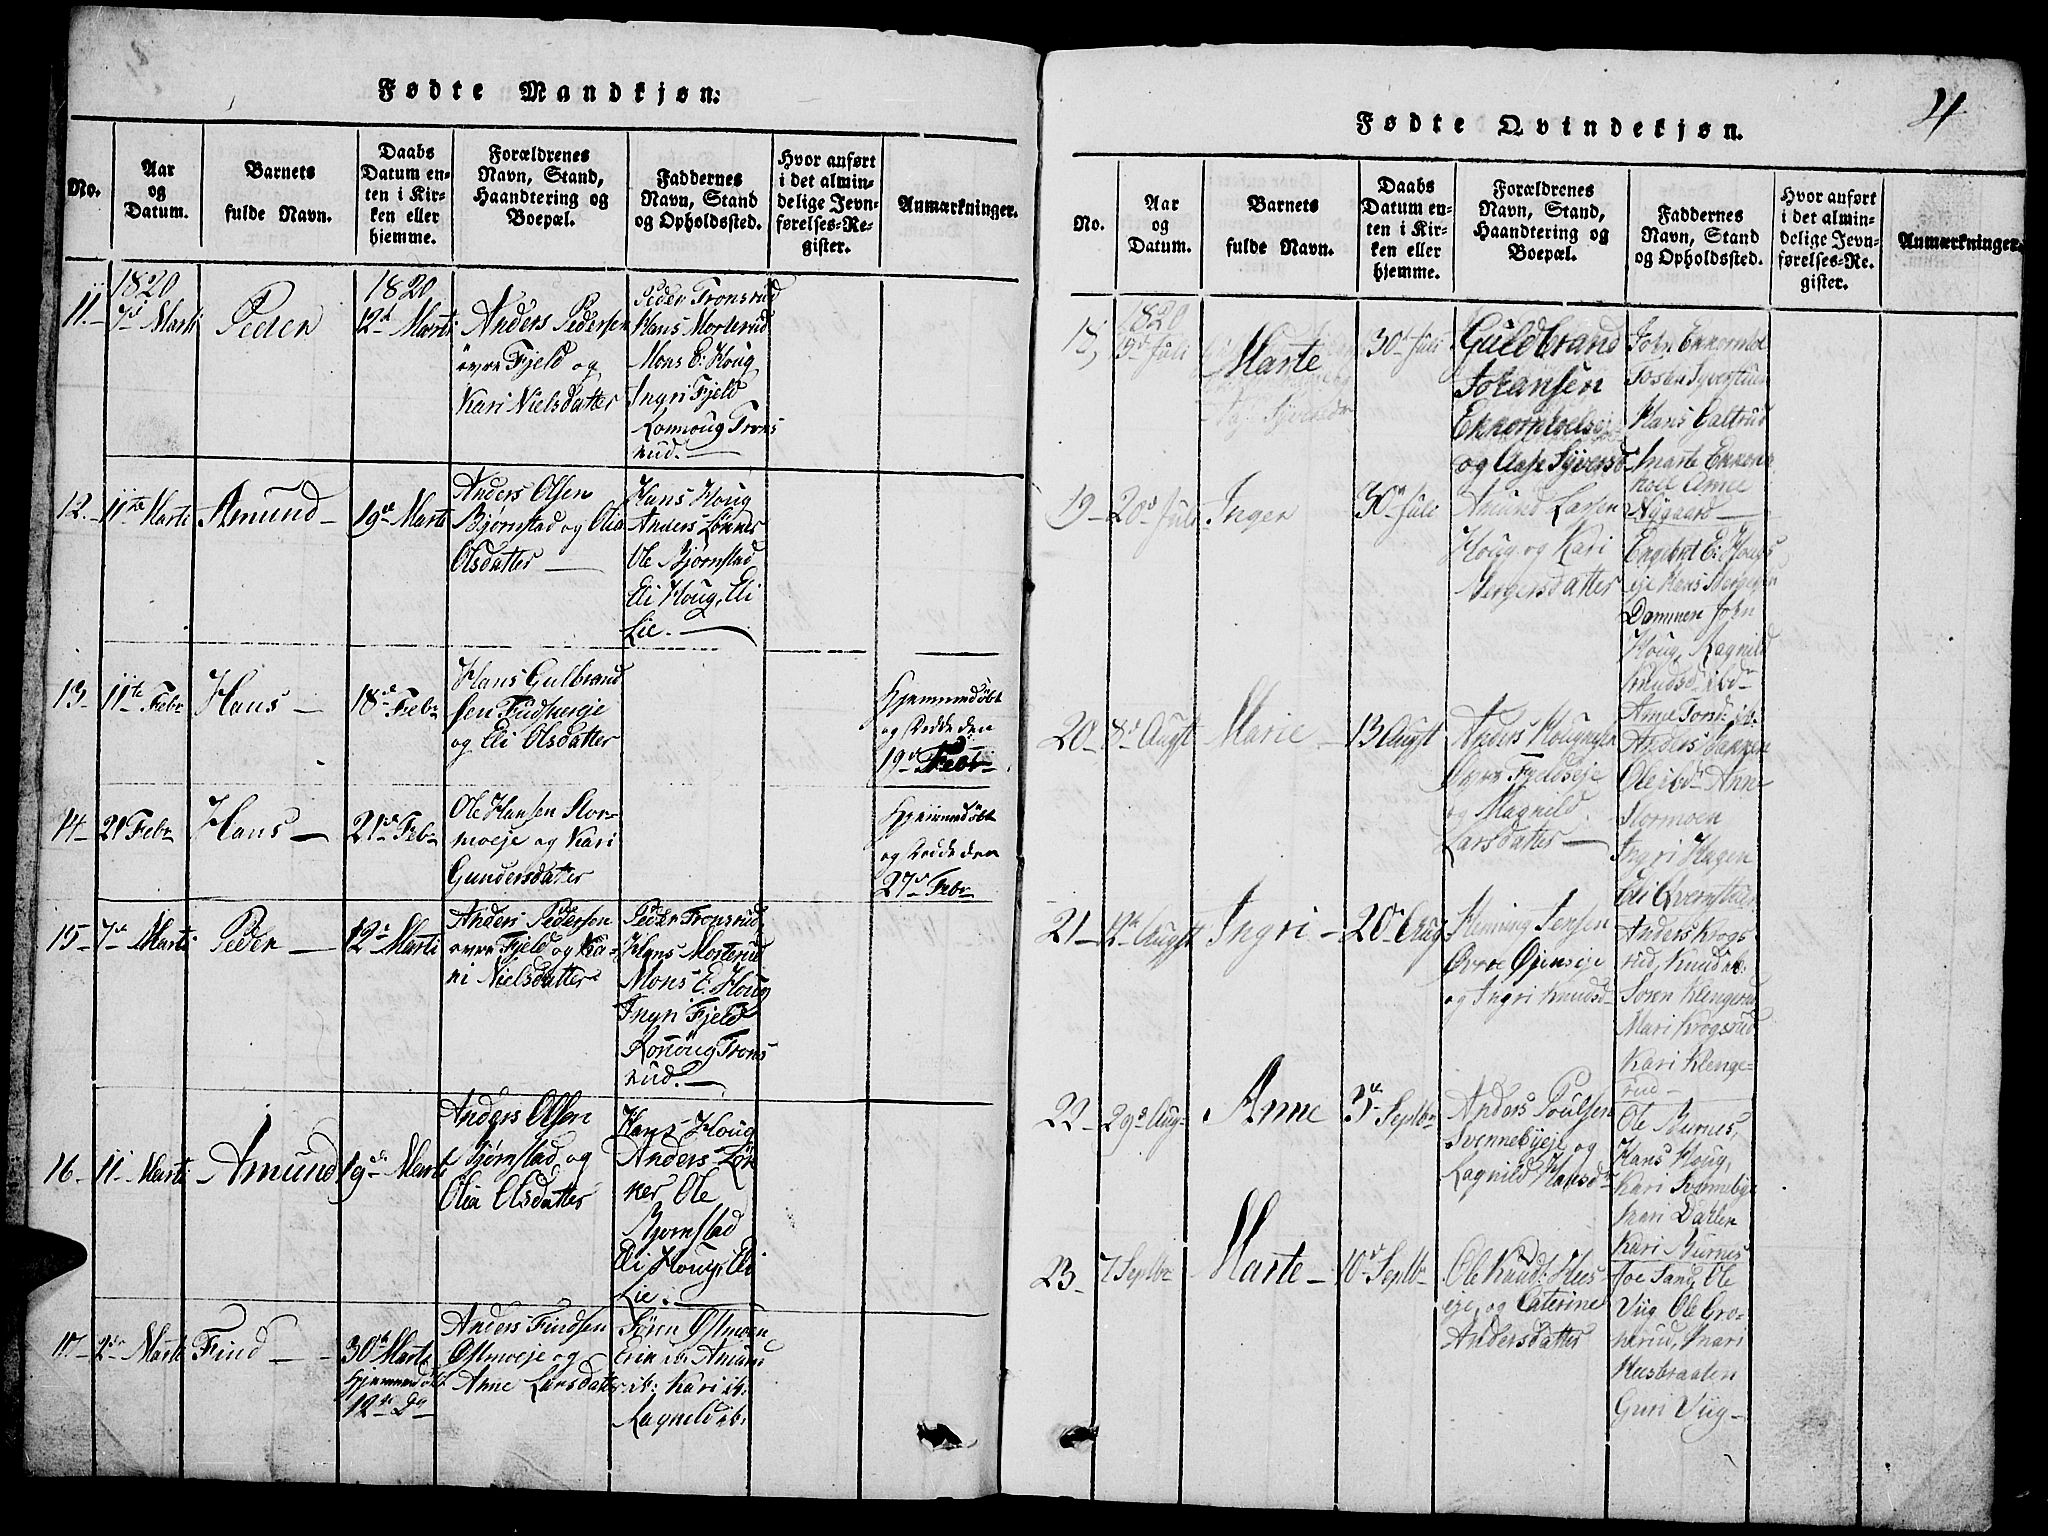 Fødte Mandkjøn:
No.
Aar
og
Datum.
Barnets
fulde Navn.
Daabs
Datum en-
ten i Kir-
ken eller
hiemme.
Forældrenes
Navn, Stand,
Haandtering og
Boepæl.
Faddernes
Navn, Stand
og Opholdssted.
Hvor anført
i det almin-
delige Jevn-
førelses-Re-
gister.
Anmærkninger.
11.
1820
7de Marti
Peder
1820
12te Marti
Anders Pedersen
øvre Fjeld og
Kari Nielsdatter
Peder Tronsrud
Hans Morterud
Mons E: Houg
Ingri Fjeld
Trons
rud.
12.
11te Marti
Amund
19de Marti
Anders Olsen
Bjørnstad og Olia
Olsdatter
Hans Houg
Anders Løkner
Ole Bjørnstad
Eli Houg, Eli
Lie.
13
11te Febr
Hans
18de Febr
Hans Gulbrand
sen
og Eli Olsdatter
Hjemmedøbt
og døde den
19de Febr
14
21 Febr
Hans
21de Febr
Ole Hansen Stor-
moeje og Kari
Gundersdatter
Hjemmedøbt
og døde den
27de Febr
15
7de Marti
Peder
12te Marti
Anders Pedersen
øvre Fjeld og Ka-
ri Nielsdatter
Peder Tronsrud,
Hans Morterud
Mons E. Houg
Ingri Fjeld
Trons
rud.
16
11 Marti
Amund
19de Marti
Anders Olsen
Bjørnstad og
Olia Olsdatter
Hans Houg
Anders Løk
ner Ole
Bjørnstad
Eli Houg, Eli
Lie.
17
2den Marti
Find
30te Marti
Hjemmedøbt
12te Do
Anders Findsen
Østmoeje og
Anne Larsdatter
Søren Østmoen
Erik ib: Amund
ib: Kari ib:
Ragnild ib:
4
Fødte Qvindekjøn.
No.
Aar
og
Datum.
Barnets
fulde Navn.
Daabs
Datum en-
ten i Kir-
ken eller
hjemme.
Forældrenes
Navn, Stand,
Haandtering og
Boepæl.
Faddernes
Navn, Stand
og Opholdssted.
Hvor anført
i det almin-
delige Jevn-
førelses-Re-
gister.
Anmærkninger.
18
1820
9de Juli
Marte
30te Juli
Guldbrand
Johansen
og Aase Syversd
John
Hans
Marte
Anne
Nygaard
19
20de Juli
Inger
30te Juli
Amund Larsen
Houg og Kari
Engebret E: Hougs
eje Hans
Dammen John
Houg, Ragnild
Knudsd ibdm
20
8de Augst
Marie
13 Augst
Anders
Øvre Fjeldseje
og Magnild
Larsdatter
Anne
Anders Bakken
Ole ibdm Anne
Stormoen
Ingri Hagen
Eli
21
12te Augst
Ingri
20de Aug
Henning Jensen
Øvre Øjenseje
og Ingri Knudsd
Anders Krogs
rud, Knud ib:
Søren Klengerud
Mari Krogsrud
Kari Klenge-
rud
22
29de Aug
Anne
3de Septbr
Anders Poulsen
Svennebyeje og
Ragnild Hansdr
Ole Burnes,
Hans Houg,
Kari Svennebye
Mari Dahlen
Kari Burnes
23
7 Septbr
Marte
10de Septbr
Ole Knuds:
eje og Caterine
Andersdatter
Joe Sand, Ole
Viig Ole Gro-
herud, Mari
Husbraaten
Guri Viig